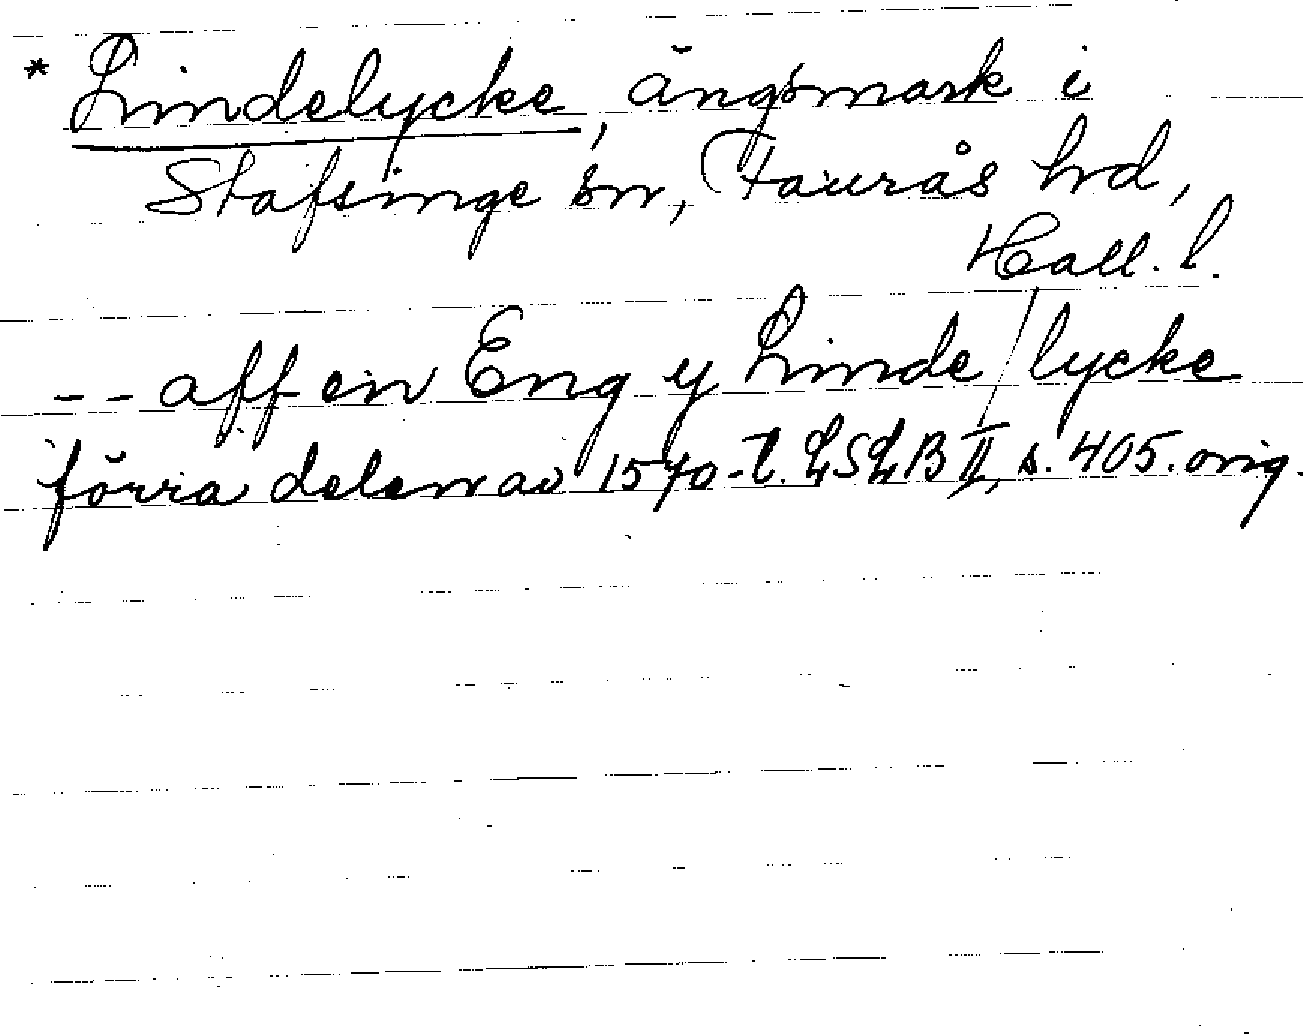 * Lindelycke, ängsmark i
Stafsinge sn, Faurås hd,
Hall. l.
-- aff en Eng y Linde / lycke
förra delen av 1570-t. LSLB II, s. 405. orig.